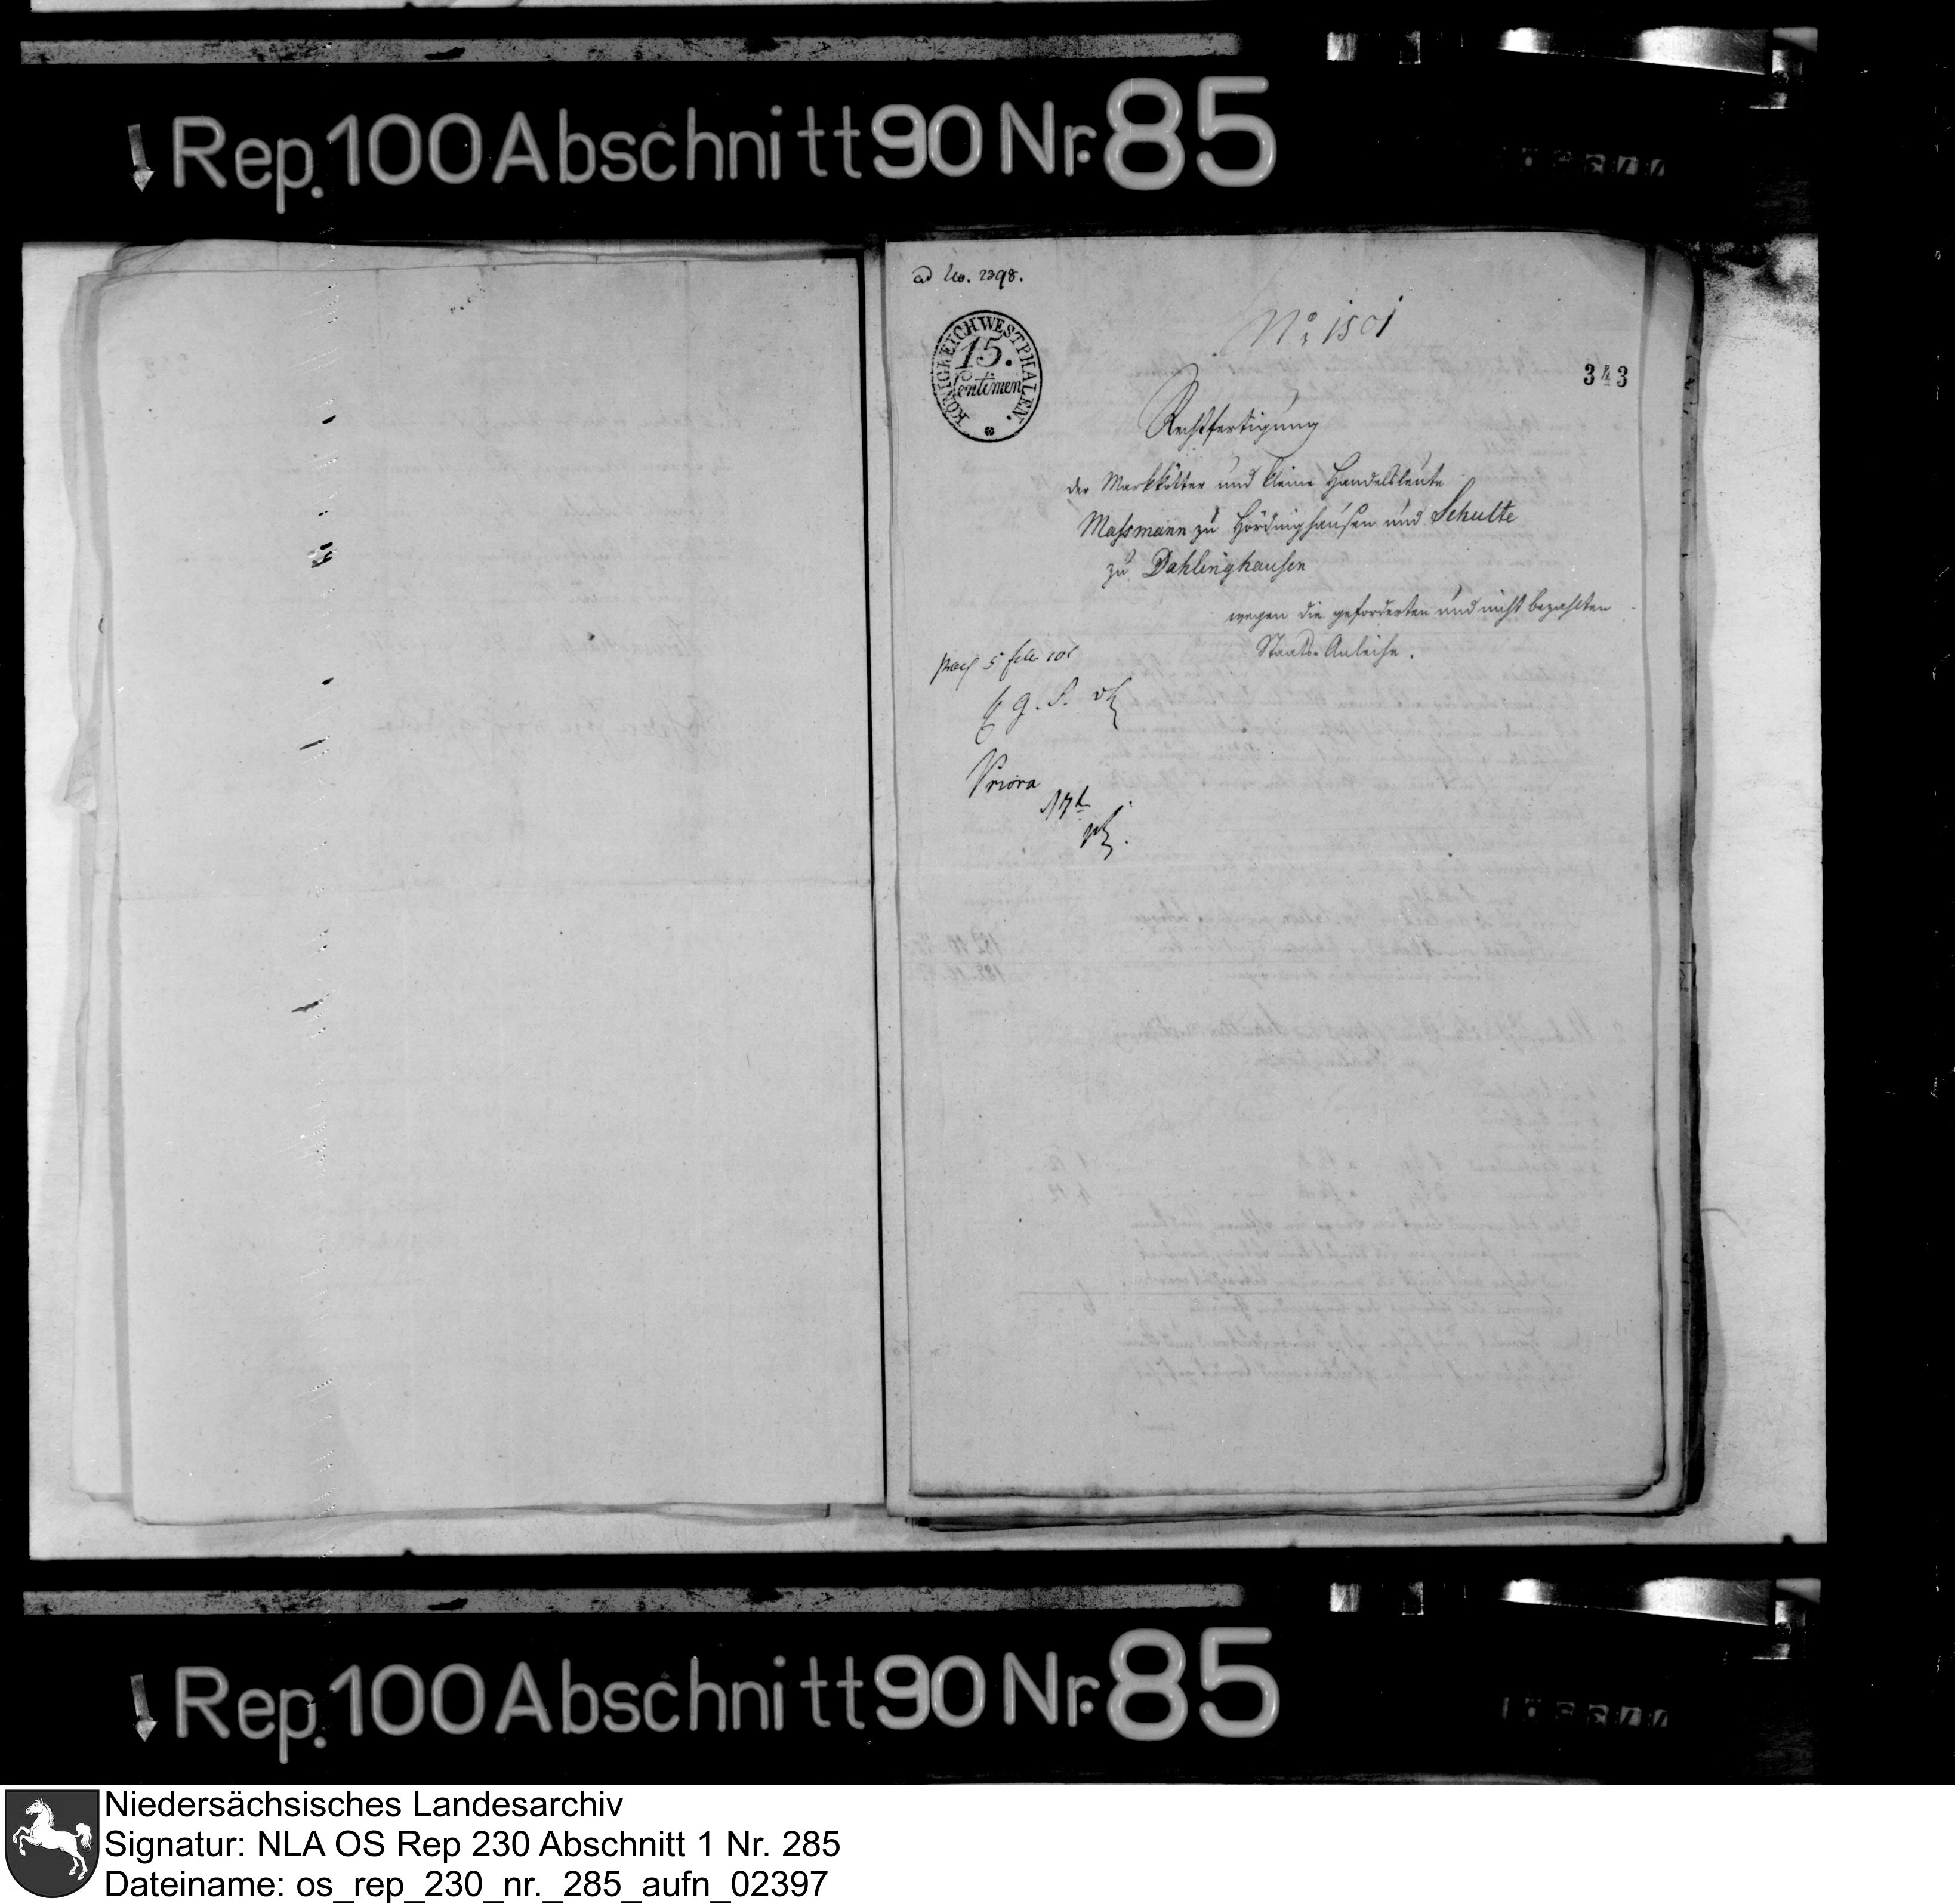 Rep. 100 Abschnitt 90 Nr. 85
ad No. 2398.
KÖNIGREICH WESTPHALEN.
15.
Centimen
No. 1501
343
Rechtfertigung
der Markkötter und kleine Handelsleute
Massmann zu Hördinghausen und Schulte
zu Dahlinghausen
wegen die geforderten und nicht bezahlten
Staats-Anleihe.
Priora
Rep. 100 Abschnitt 90 Nr. 85
Niedersächsisches Landesarchiv
Signatur: NLA OS Rep 230 Abschnitt 1 Nr. 285
Dateiname: os_rep_230_nr._285_aufn_02397